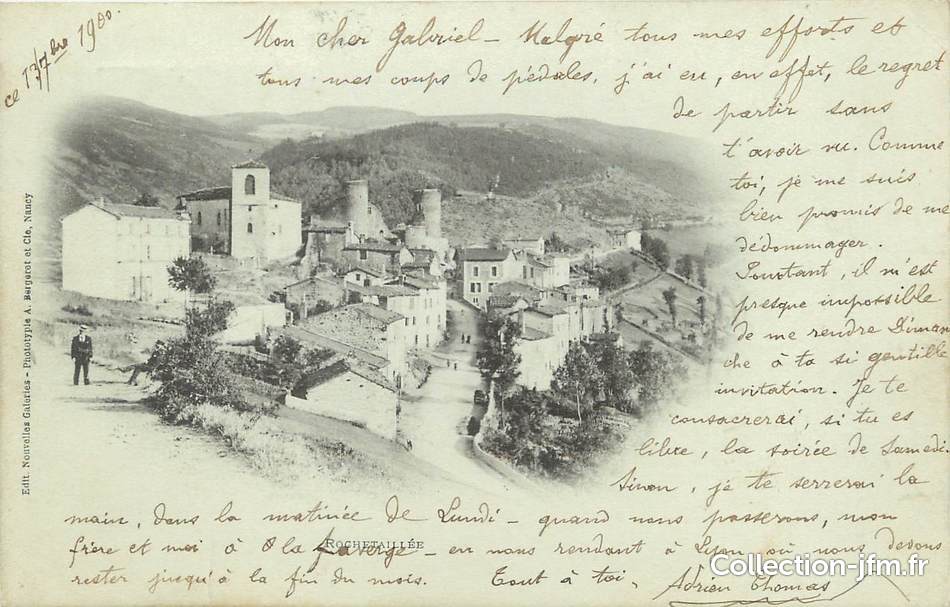 ce 17 7bre 1900.
Mon cher Gabriel – Malgré tous mes efforts et
tous mes coups de pédales, j'ai eu, en effet, le regret
de partir sans
t'avoir vu. Comme
toi, je me suis
bien promis de me
dédommager.
Pourtant, il m'est
presque impossible
de me rendre Diman
che à ta si gentille
invitation. Je te
consacrerai, si tu es
libre, la soirée de Samedi.
Sinon, je te serrerai la
main, dans la matinée de Lundi – quand nous passerons, mon
frère et moi à la – en nous rendant à Lyon où nous devons
rester jusqu'à la fin du mois. Tout à toi,
Adrien Thomas
ROCHETAILLÉE
Edit. Nouvelles Galeries - Phototypie A. Bergeret et Cie, Nancy
Collection-jfm.fr